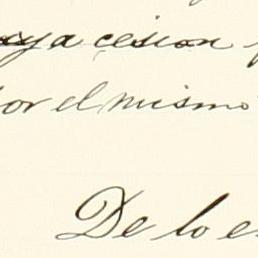 ya cesion
por el mismo
De lo e